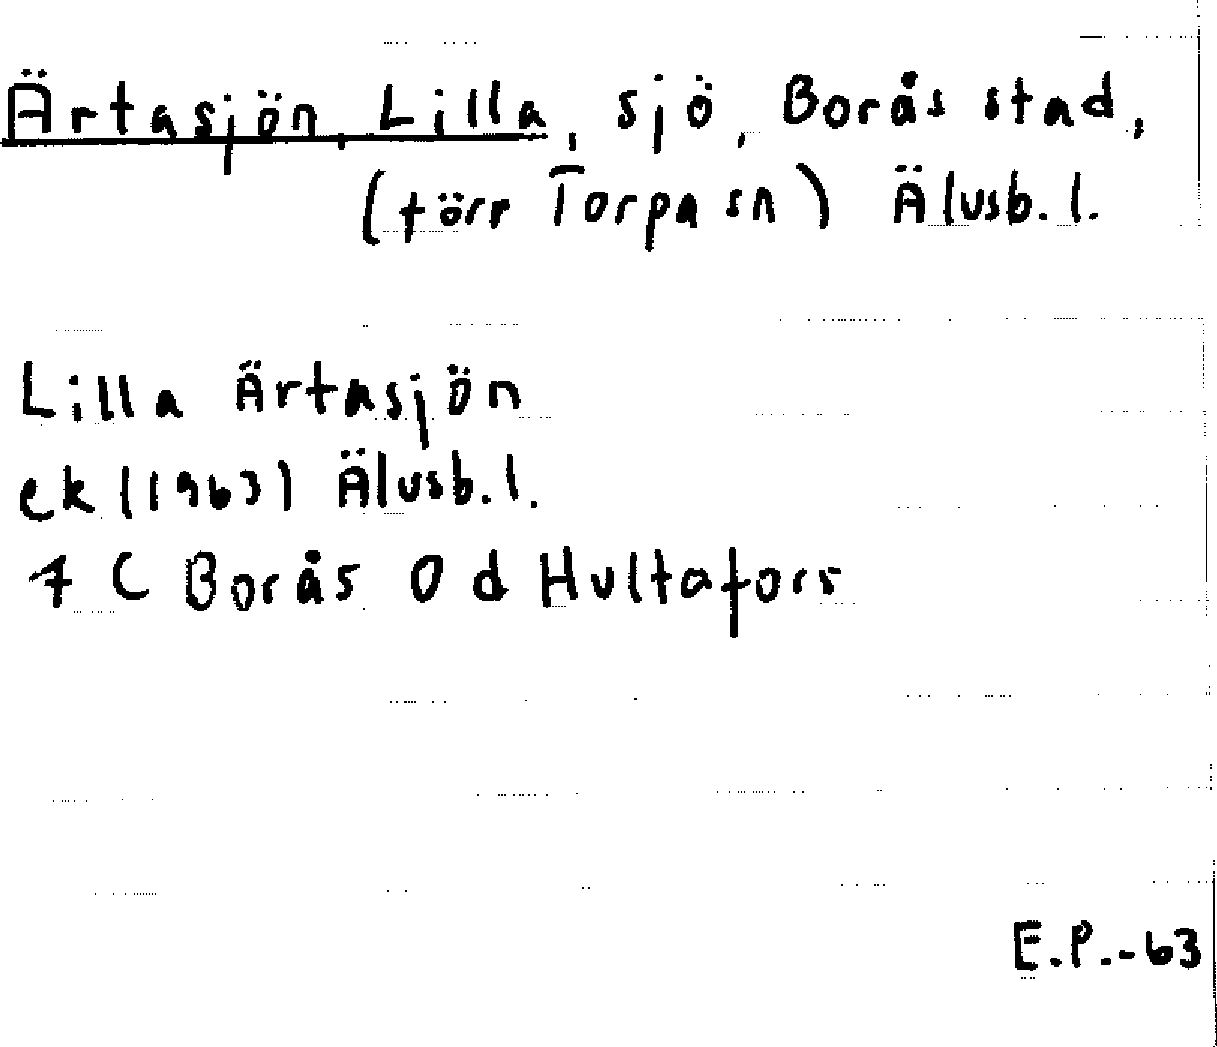 Ärtasjön, Lilla, sjö, Borås stad,
(förr Torpa sn) Älvsb. l.
Lilla Ärtasjön
ek (1963) Älvsb. l.
7 C Borås 0 d Hultafors
E.P.-63